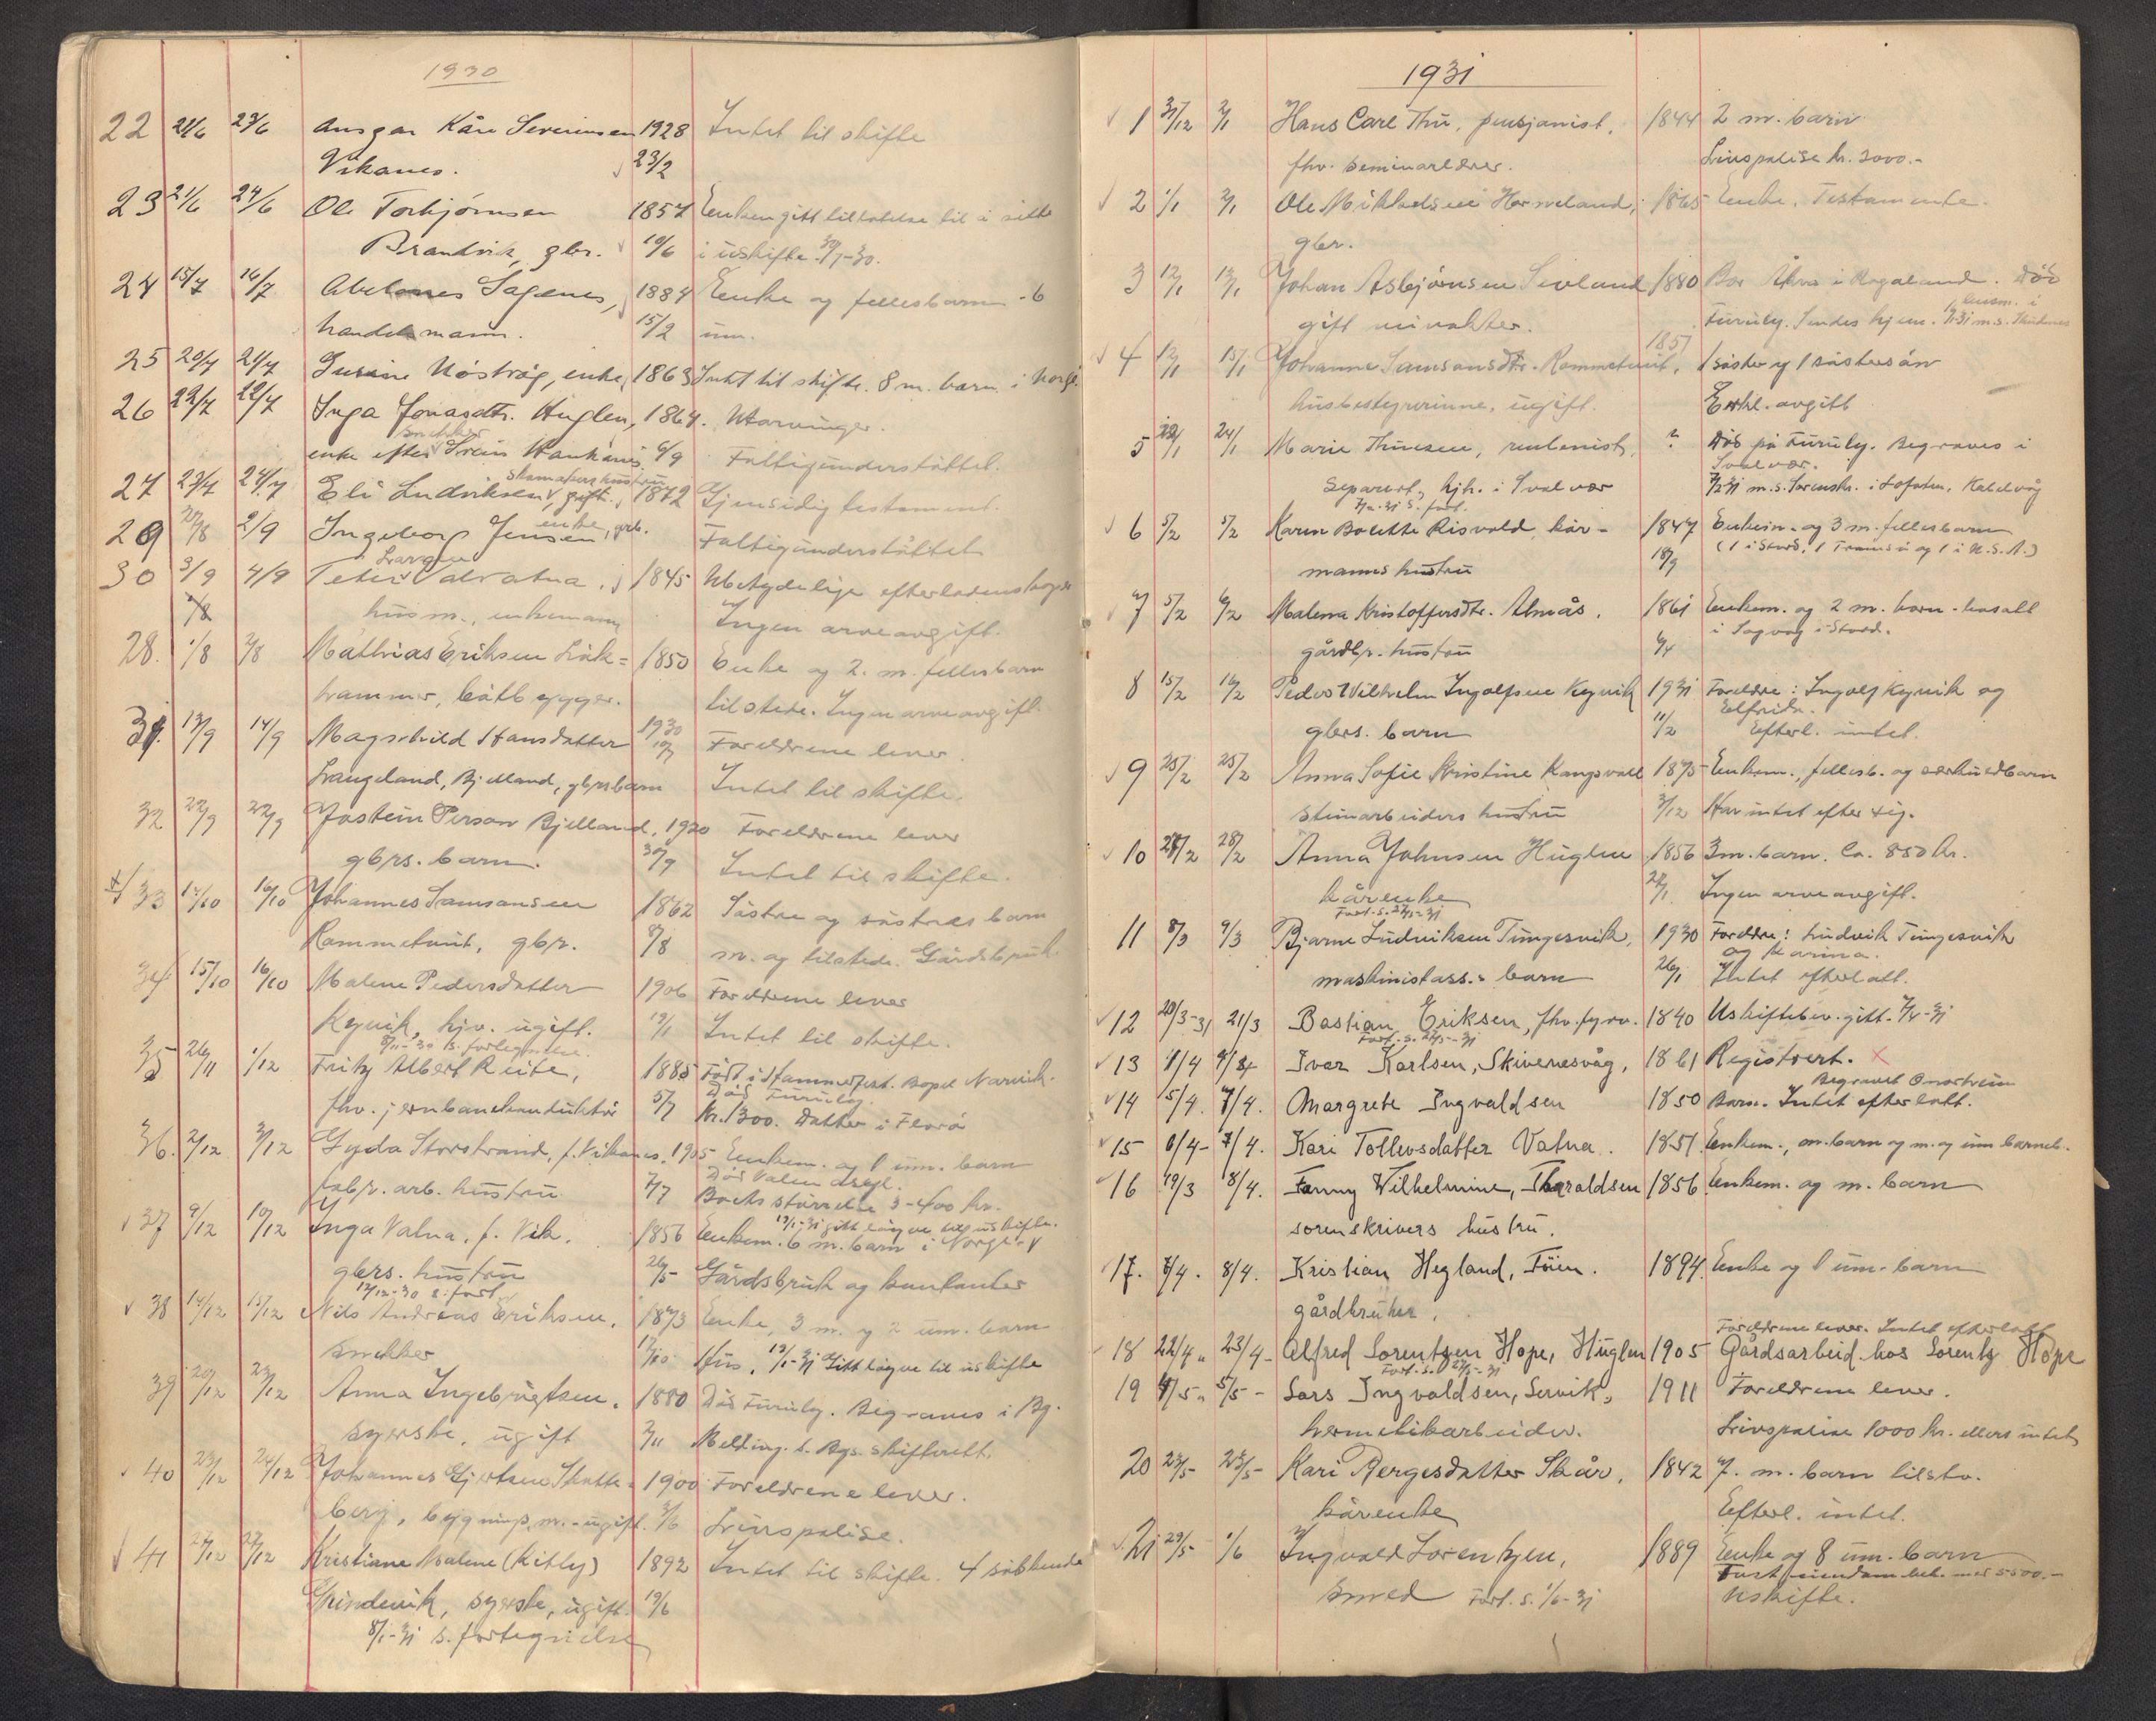 1930
22 21/6 23/6 Ansgar Kåre Severinsen 1928 Intet til skifte
Vikanes. 23/2
23 21/6 24/6 Ole Torbjørnsen 1857 Enken gitt tillatelse til å sitte
Brandvik, gbr. 10/6 i uskifte 30/7-30.
24 15/7 16/7 Abelones Sagenes, 1884 Enke og fellesbarn - 6
handelsmann. 15/2 um.
25 20/7 21/7 Nöstvåg, enke, 1863 Intet til skifte. 8 m. barn i Norge
26 22/7 22/7 Inga Jonasdtr. Huglen, 1864. Utarvinger.
snekker
enke efter Svein 6/9 Fattigunderstöttet.
27 23/7 24/7 Eli Ludviksen, gift. 1872 Gjensidig testament.
29 2/9 Ingeborg Jensen, enke, Fattigunderstöttet
30 3/9 4/9 Vatna, 1845 Ubetydelige efterladenskaper
husm., enkemann Ingen arveavgift.
28. 1/8 2/8 Mathias Eriksen Lök- 1850 Enke og 2. m. fellesbarn
hammer, båtbygger. tilstede. Ingen arveavgift.
31. 13/9 14/9 Magnhild Hansdatter 1930 Foreldrene lever
Langeland, Bjelland, gbrs barn Intet til skifte.
32 22/9 22/9 Jostein Person Bjelland, 1920 Foreldrene lever
gbrs. barn. 30/9 Intet til skifte.
33 14/10 16/10 Johannes Samsonsen 1862 Söstre og söstres barn
Rommetveit, gbr. 8/8 m. og tilstede. Gårdsbruk
34 15/10 16/10 Malene Pedersdatter 1906 Foreldrene lever
Kyvik, hjv. ugift. 19/1 Intet til skifte.
8/11-30 s. fortegnelse.
35 26/11 1/12 Fritz Albert Reite, 1885 Född i Hammerfest. Bopel Narvik.
Död Furuly.
fhv. jernbanekonduktör 5/7 Kr. 1300. Datter i Florö
36. 2/12 3/12 Gyda Storstrand, f. Vikanes, 1905 Enkem. og 1 um. barn
Död Valen asyl.
fabr. arb. hustru 7/7 Boets störrelse 3-400 kr.
19/1-31 gitt lov til uskifte.
37 9/12 10/12 Inga Vatna, f. Vik. 1856 Enkem. 6 m. barn i Norge
gbrs. hustru 26/5 Gårdsbruk og kontanter
12/12-30 s. fort.
38 14/12 15/12 Nils Andreas Eriksen, 1873 Enke, 3 m. og 2 um. barn
snekker 17/10 Hus. 19/1-31 Gitt lov til uskifte
39 20/12 23/12 Anna Ingebrigtsen. 1880 Död Furuly. Begraves i Bg.
syerske, ugift 3/11 Melding t. Bgs. skifterett.
40 23/12 24/12 Johannes Gjertsen Skatte- 1900 Foreldrene lever.
berg, bygnings.m. - ugift. 3/6 Livspolise.
41 27/12 27/12 Kristiane Malene (Kitty) 1892 Intet til skifte. 4 söskende
Grindevik, syerske, ugift. 19/6
8/1-31 s. fortegnelse
1931
1 31/12 2/1 Hans Carl Thu, pensjonist, 1844 2 m. barn
fhv. seminarlærer. Livspolise kr. 2000.-
2 1/1 2/1 Ole Mikkelsen Horneland, 1865 Enke. Testamente.
gbr.
3 12/1 13/1 Johan Asbjörnsen Sevland 1880 Bor Åkra i Rogaland. Död
gift Furuly. Sendes hjem.
1857
4 12/1 15/1 Johanne Samsonsdtr. Rommetveit, 1 söster og 1 söstersön
husbestyrerinne, ugift. Erkl. avgitt
5 22/1 24/1 Marie Thuesen, rentenist, ? Död på Furuly. Begraves i
Svolvær.
separert, hjh. i Svolvær 7/2 31 m. s. Sorenskr. i Lofoten, Kabelvåg
6 5/2 5/2 Karen Bolette Risvold, kår- 1847 Enkem. og 3 m. fellesbarn
(1 i Stord, 1 Tromsö og 1 i U.S.A.)
manns hustru 18/9
7 5/2 6/2 Malena Kristoffersdtr. Almås. 1861 Enkem. og 2 m. barn - bosatt
i Sagvåg i Stord.
gårdbr. hustru 6/4
8 15/2 16/2 Peder Vilhelm Ingolfsen Kyvik 1931 Foreldre: Ingolf Kyvik og
Elfrida.
gbrs. barn 11/2 Efterl. intet.
9 25/2 25/2 Anna Sofie Kristine Kongsvoll 1875 Enkem., fellesb. og særkullbarn
steinarbeiders hustru 3/12 Har intet efter sig.
10 27/2 28/2 Anna Johnsen Huglen 1856 3 m. barn. Ca. 850 kr.
kårenke 27/1 Ingen arveavgift.
Fort. s. 27/5-31
11 8/3 9/3 Bjarne Ludviksen Tungesvik, 1930 Foreldre: Ludvik Tungesvik
og Karina.
maskinistass.s barn 26/1 Intet efterlatt.
12 20/3-31 21/3 Bastian Eriksen, fhv. fyrv. 1840 Uskiftebev. gitt. 7/4-31
Fort. s. 27/5-31
13 1/4 4/4 Ivar Karlsen, Skivenesvåg, 1861 Registrert. X
Begravet Onarheim
14 5/4. 7/4. Margrete Ingvaldsen 1850 Barn. Intet efterlatt.
15 6/4- 7/4. Kari Tollevsdatter Vatna. 1851. Enkem., m. barn og m. og um barneb.
16 19/3 8/4. Fanny Wilhelmine, Tharaldsen 1856. Enkem. og m. barn
sorenskrivers hustru.
17. 7/4. 8/4. Kristian Hegland, Töien. 1894. Enke og 1 um. barn
gårdbruker.
Foreldrene lever. Intet efterlatt
18 22/4 23/4 Alfred Lorentzen Hope, Huglen 1905 Gårdsarbeid. hos Lorentz Hope
Fort. s. 27/5-31
19 4/5 5/5 Lars Ingvaldsen, Lervik, 1911 Foreldrene lever.
hermetikarbeider. Livspolise 1000 kr. ellers intet
20 23/5 23/5 Kari Børgesdatter Skår, 1842 7. m. barn tilst.
kårenke Efterl. intet.
21 29/5 1/6 Ingvald Lorentzen, 1889 Enke og 8 um. barn
Fast eiendom bel. med 5500.-
smed Fort. s. 1/6-31 Uskifte.